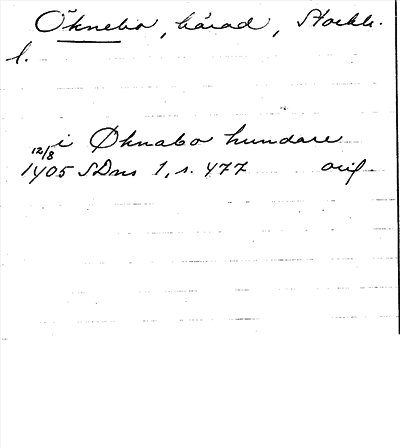 Öknebo, härad, Stockh.
l.
i Øknabo hundare
12/8 1405 SDns 1, s. 477 orig.